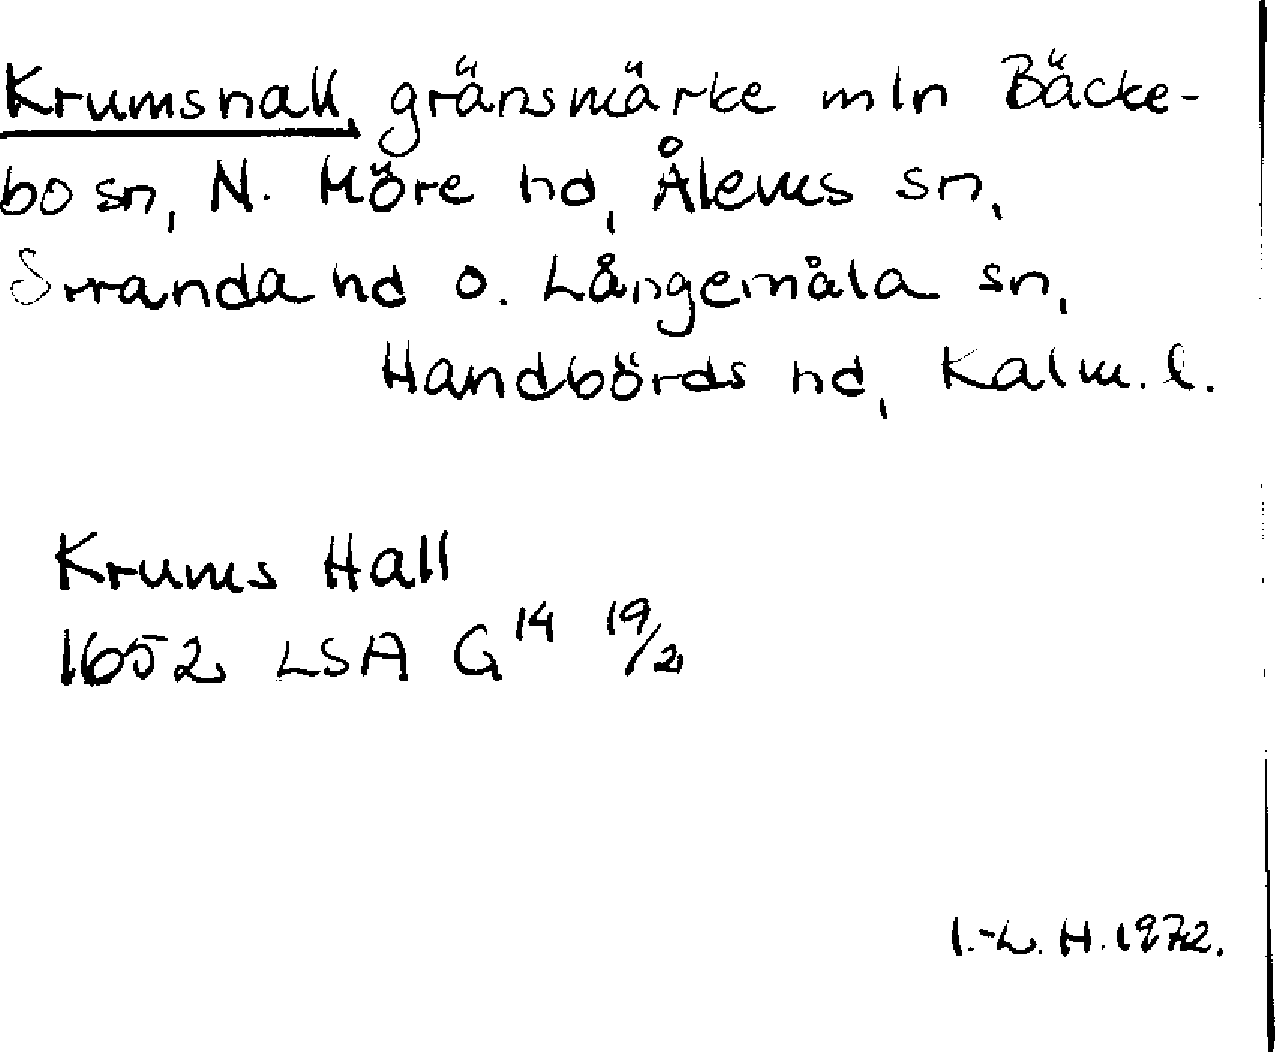 Krumshall, gränsmärke mln Bäcke-
bo sn, N. Möre hd, Ålems sn,
Stranda hd o. Långemåla sn,
Handbörds hd, Kalm. l.
Krums Hall
1652 LSA G 14 19/2
I.-L. H. 1972.